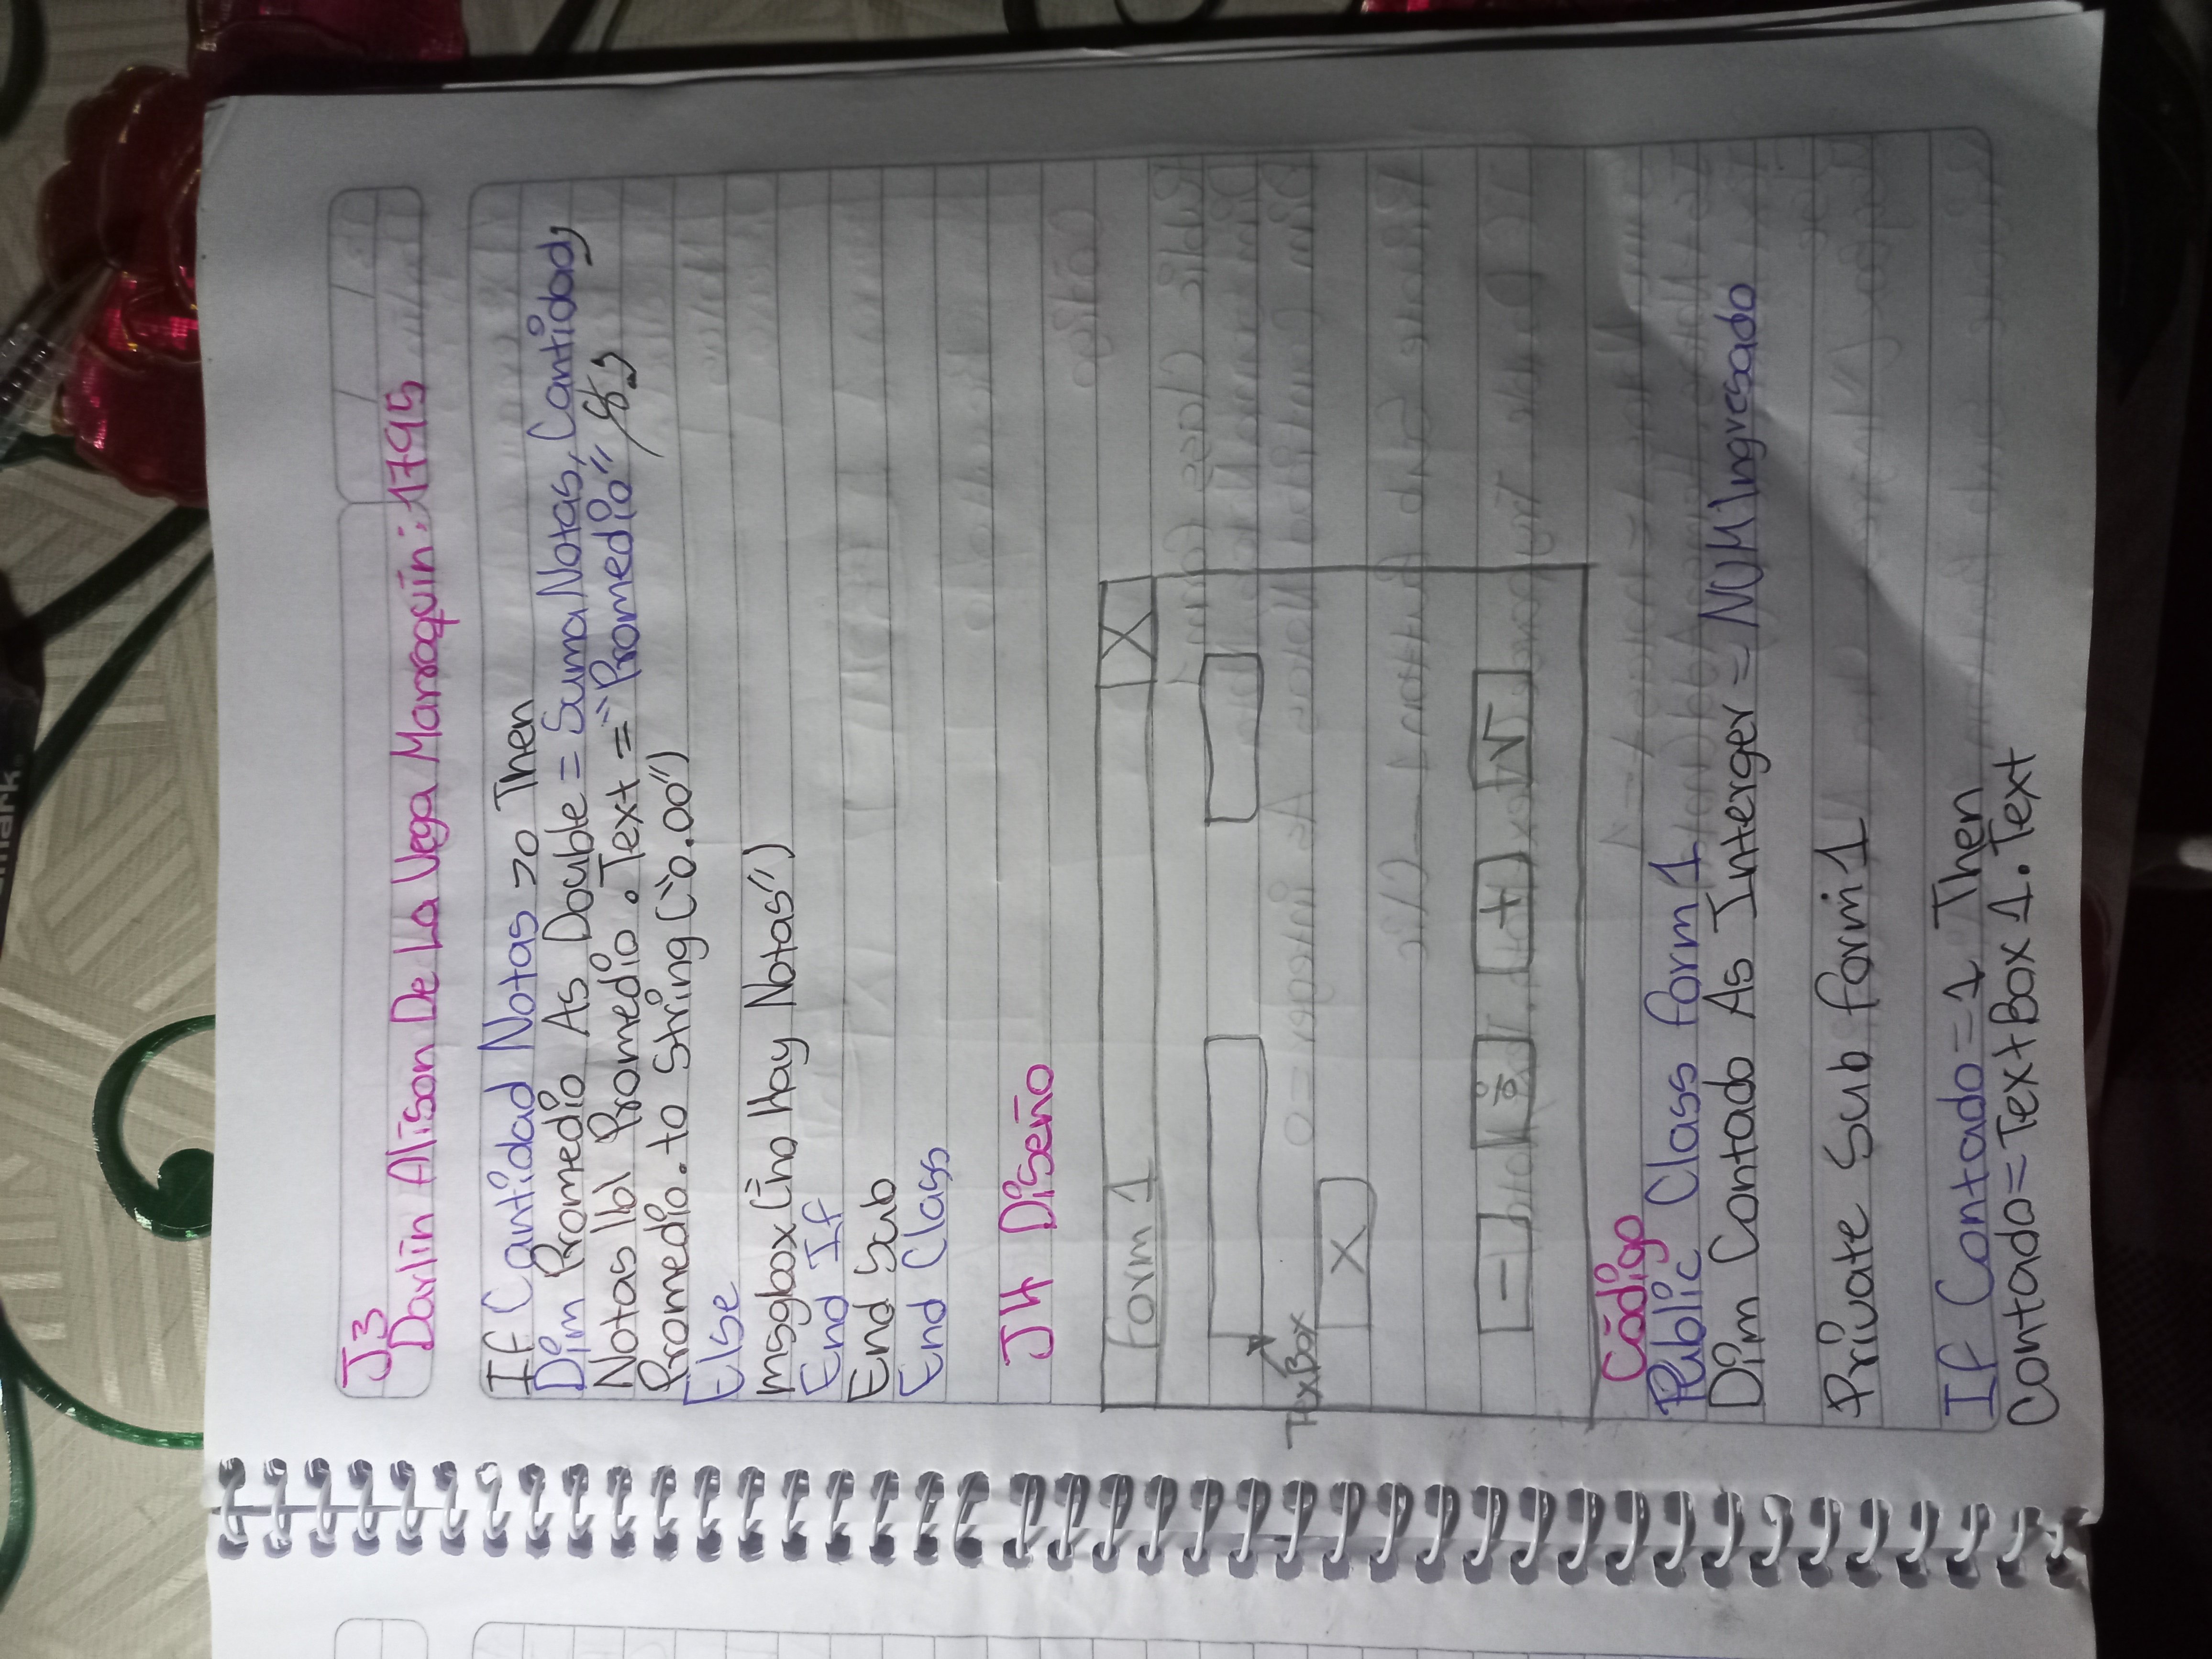 J3
Darlin Alison De La Vega Marroquin: 1795
If Cantidad Notas >0 Then
Dim Promedio As Double = Suma Notas, Cantidad,
Notas lbl Promedio. Text = "Promedio" &,
Promedio. to String ("0.00")
Else
msgbox ("no Hay Notas")
End If
End Sub
End Class
J4 Diseño
Form 1 X
TexBox
X
- % + √
Código
Public Class form 1
Dim Contado As Interger = NUM Ingresado
Private Sub form 1
If Contado = 1 Then
Contado = Text Box 1. Text